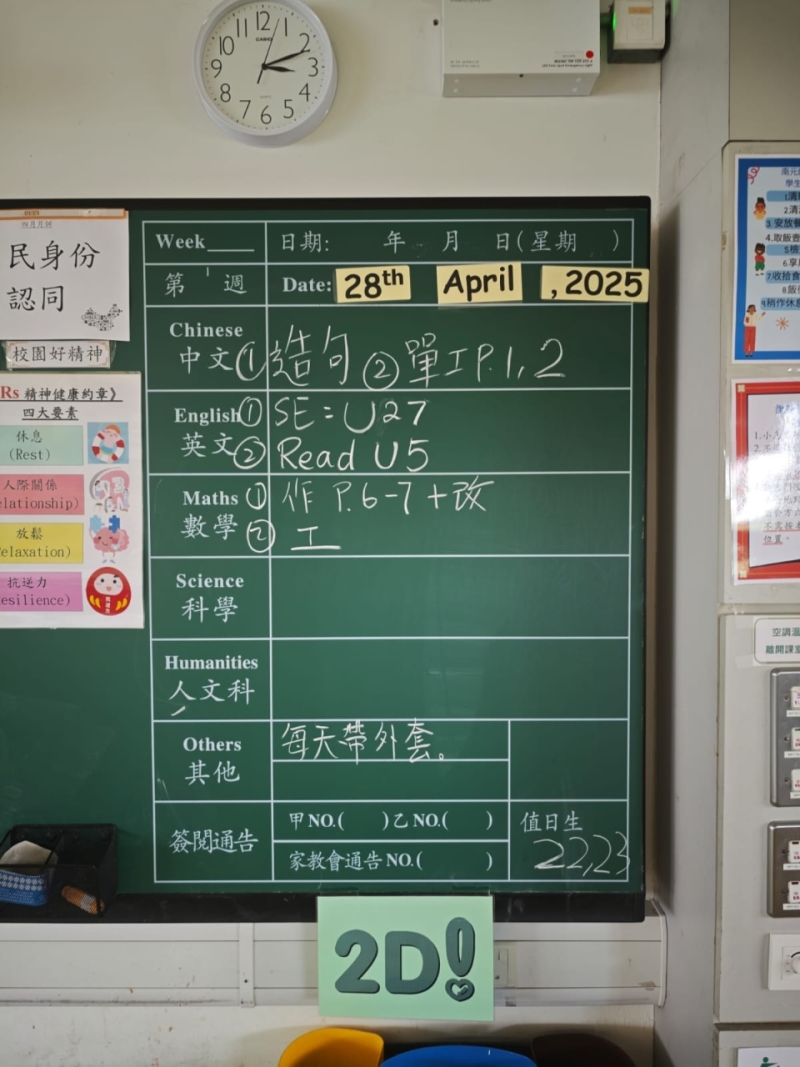 12
11
1
10
2
9
3
8
4
7
5
6
CASIO
民身份
認同
校園好精神
Rs 精神健康約章》
四大要素
休息
(Rest)
人際關係
elationship)
放鬆
elaxation)
抗逆力
esilience)
Week 日期: 年 月 日(星期 )
第 週 Date: 28th April , 2025
Chinese
中文 ① 造句 ② 單工 P.1, 2
English ① SE = U27
英文 ② Read U5
Maths ① 作 P.6-7 + 改
數學 ② 工
Science
科學
Humanities
人文科
Others
其他
每天帶外套。
簽閱通告
甲 NO.( )乙 NO.( )
家教會通告 NO.( )
值日生
22,23
2D!
空調溫
離開課室